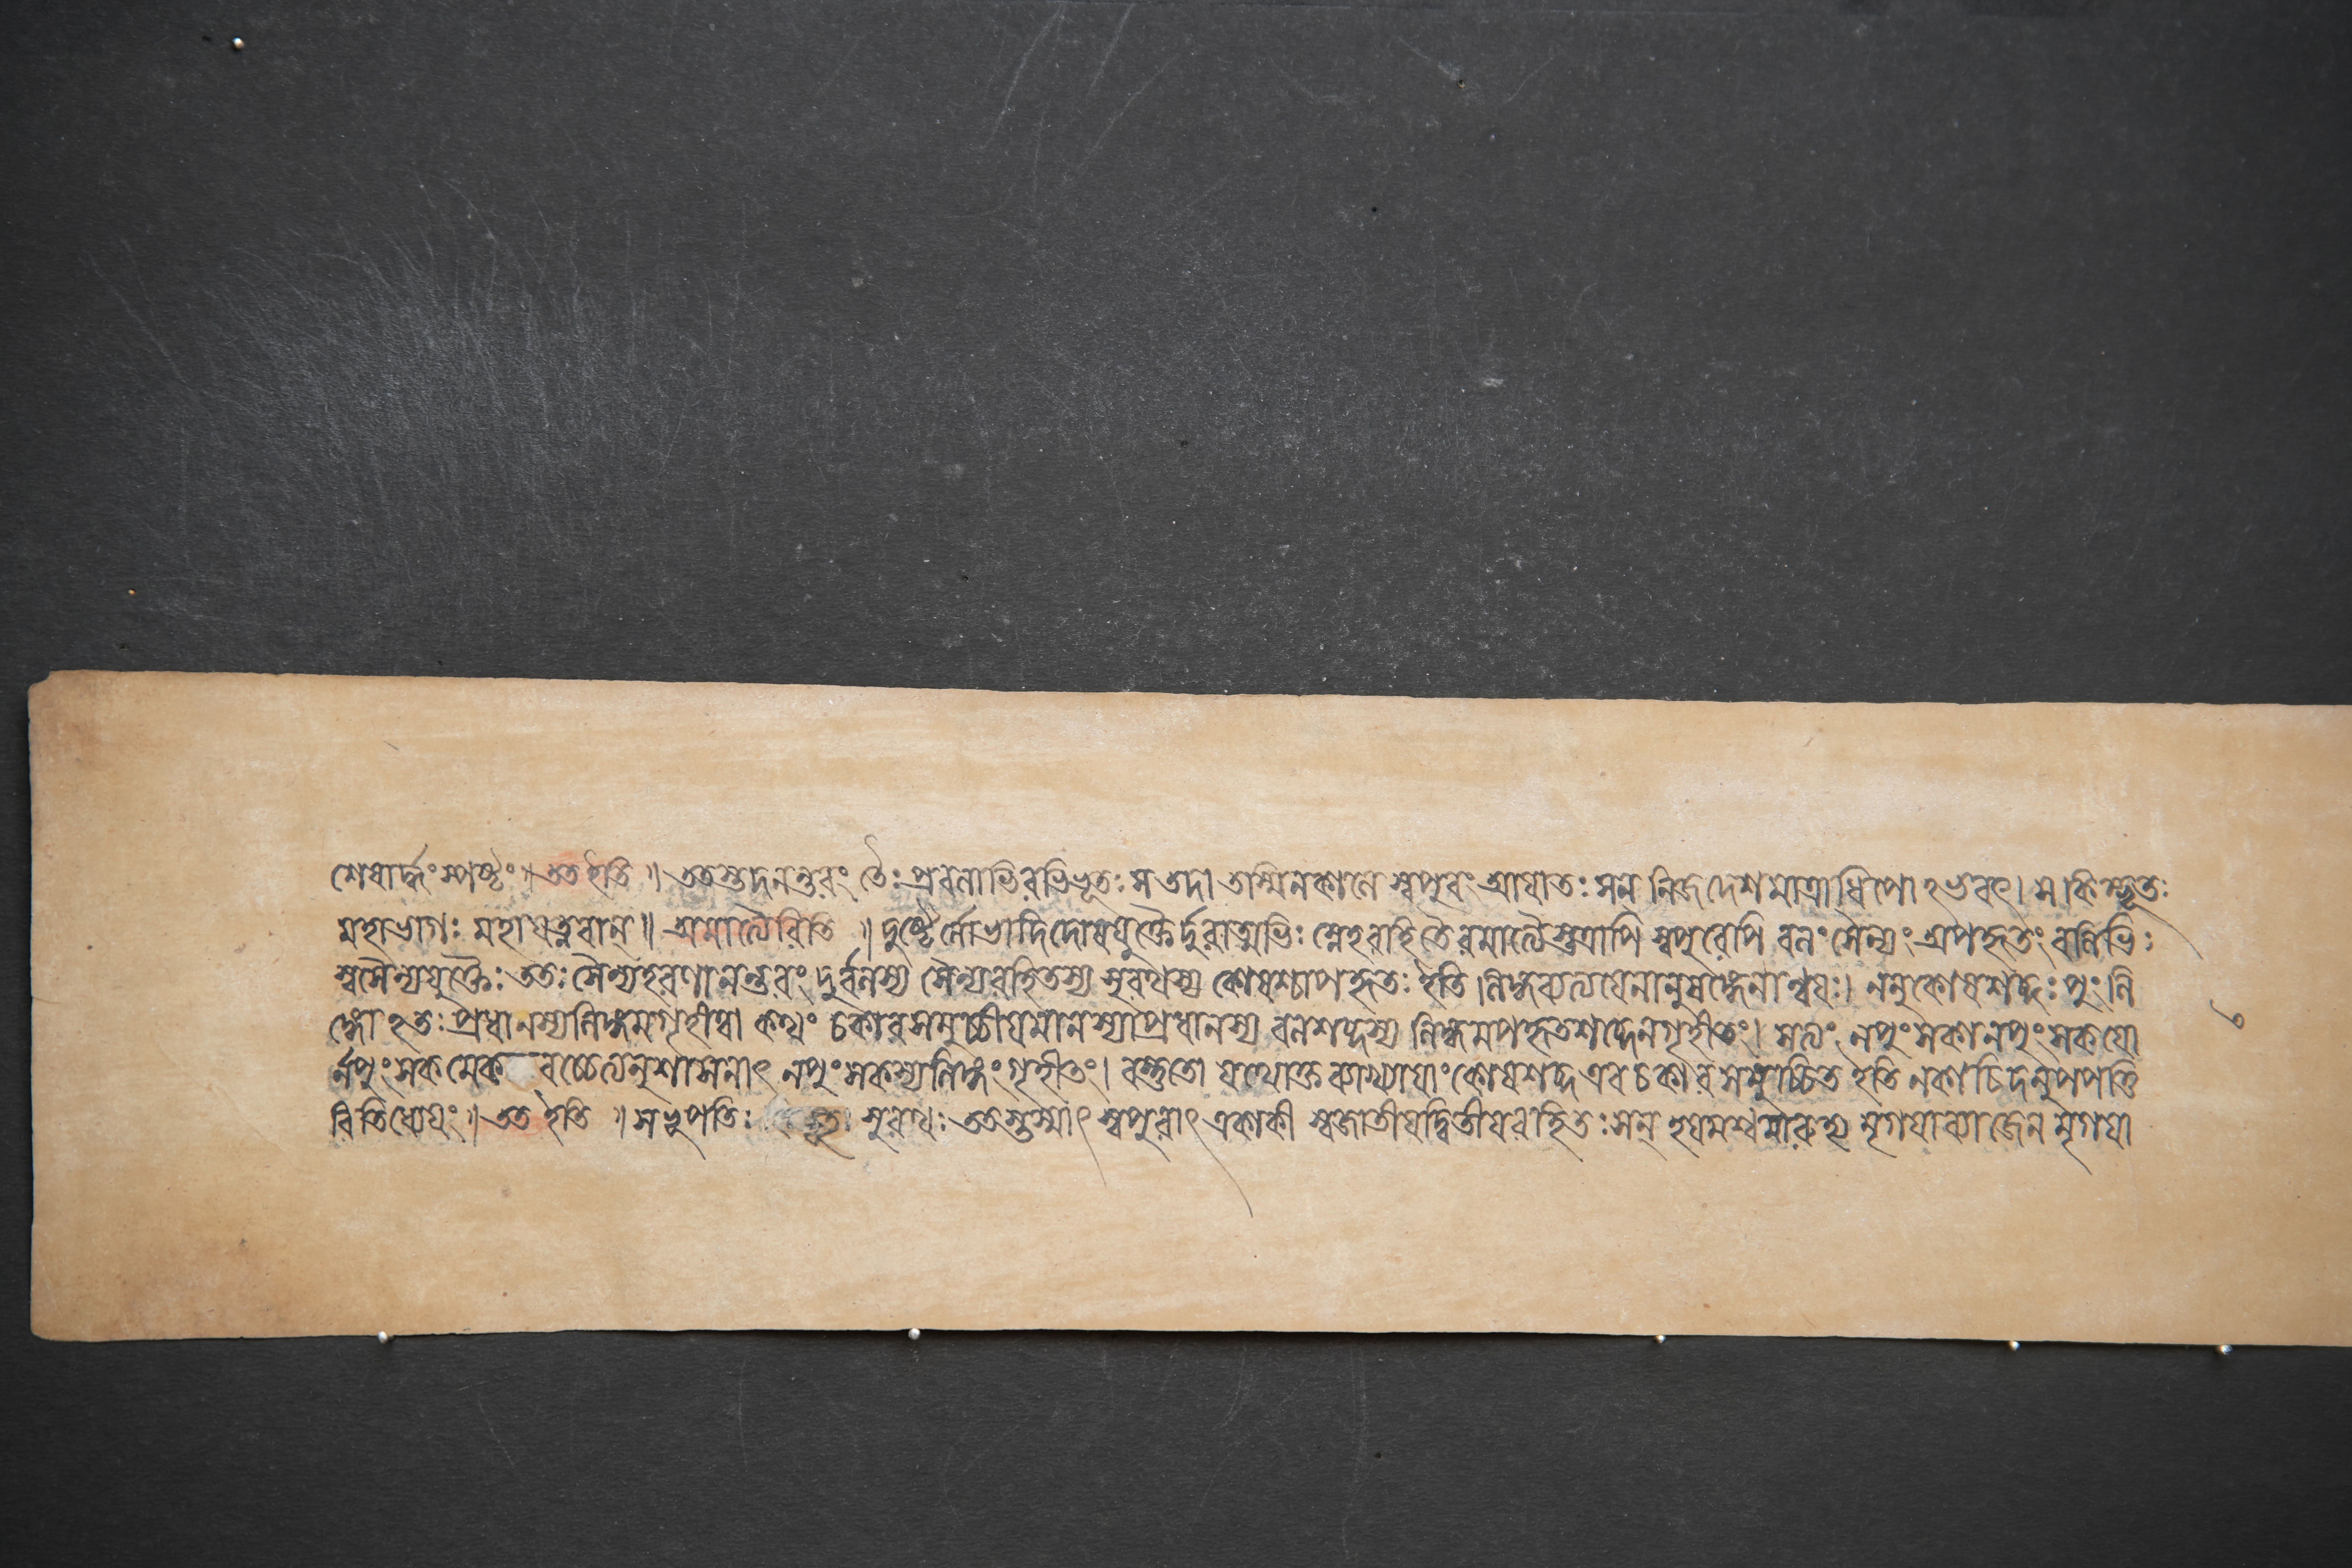 শেষার্দ্ধং স্পষ্টং ॥ তত ইতি ॥ ততস্তদনন্তরং তৈঃ প্রবলারিভিরভিভূতঃ স তদা তস্মিনকালে স্বপুরং আয়াতঃ সন্ নিজদেশমাত্রাধিপোঽভবৎ। স কিম্ভূতঃ
মহাভাগঃ মহাযত্নবান্ ॥ অমাত্যৈরিতি ॥ দুষ্টৈর্লোভাদিদোষযুক্তৈর্দুরাত্মভিঃ স্নেহরহিতৈরমাত্যৈস্তত্রাপি স্বপুরেপি বলং সৈন্যং অপহৃতং বলিভিঃ
স্বসৈন্যযুক্তৈঃ ততঃ সৈন্যহরণানন্তরং দুর্বলস্য সৈন্যরহিতস্য সুরথস্য কোষশ্চাপহৃতঃ ইতি লিঙ্গব্যত্যয়েনানুষঙ্গেনান্বয়ঃ। ননু কোষশব্দঃ পুংলি
ঙ্গোঽতঃ প্রধানস্য লিঙ্গমগৃহীত্বা কথং চকারসমুচ্চীয়মানস্যাপ্রধানস্য বলশব্দস্য লিঙ্গমপহৃতশব্দেন গৃহীতং। সত্যং নপুংসকানপুংসকয়ো
র্নপুংসকমেকবচ্চেত্যনুশাসনাৎ নপুংসকস্য লিঙ্গং গৃহীতং। বস্তুতো যথোক্তব্যাখ্যায়াং কোষশব্দ এব চকারসমুচ্চিত ইতি ন কাচিদনুপপত্তি
রিতি ধ্যেয়ং ॥ তত ইতি ॥ স ভূপতিঃ সুরথঃ ততস্তস্মাৎ স্বপুরাৎ একাকী স্বজাতীয়দ্বিতীয়রহিতঃ সন্ হয়মশ্বমারুহ্য মৃগয়াব্যাজেন মৃগয়া